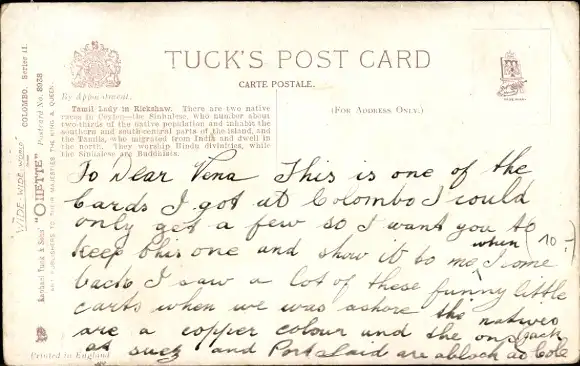 TUCK'S POST CARD
CARTE POSTALE.
By Appointment.
(FOR ADDRESS ONLY.)
"WIDE-WIDE-WORLD"
COLOMBO. Series II.
Raphael Tuck & Sons' "OILETTE" Postcard No. 8938
ART PUBLISHERS TO THEIR MAJESTIES THE KING & QUEEN.
Tamil Lady in Rickshaw. There are two native
races in Ceylon—the Sinhalese, who number about
two-thirds of the native population and inhabit the
southern and south-central parts of the island, and
the Tamils, who migrated from India and dwell in
the north. They worship Hindu divinities, while
the Sinhalese are Buddhists.
To Dear Vena This is one of the
Cards I got at Colombo I could
only get a few so I want you to
Keep this one and show it to me when I come
back I saw a lot of these funny little
carts when we was ashore the natives
are a copper colour and the ones
at suez and Port Said are as black as Cole
Jack
Printed in England